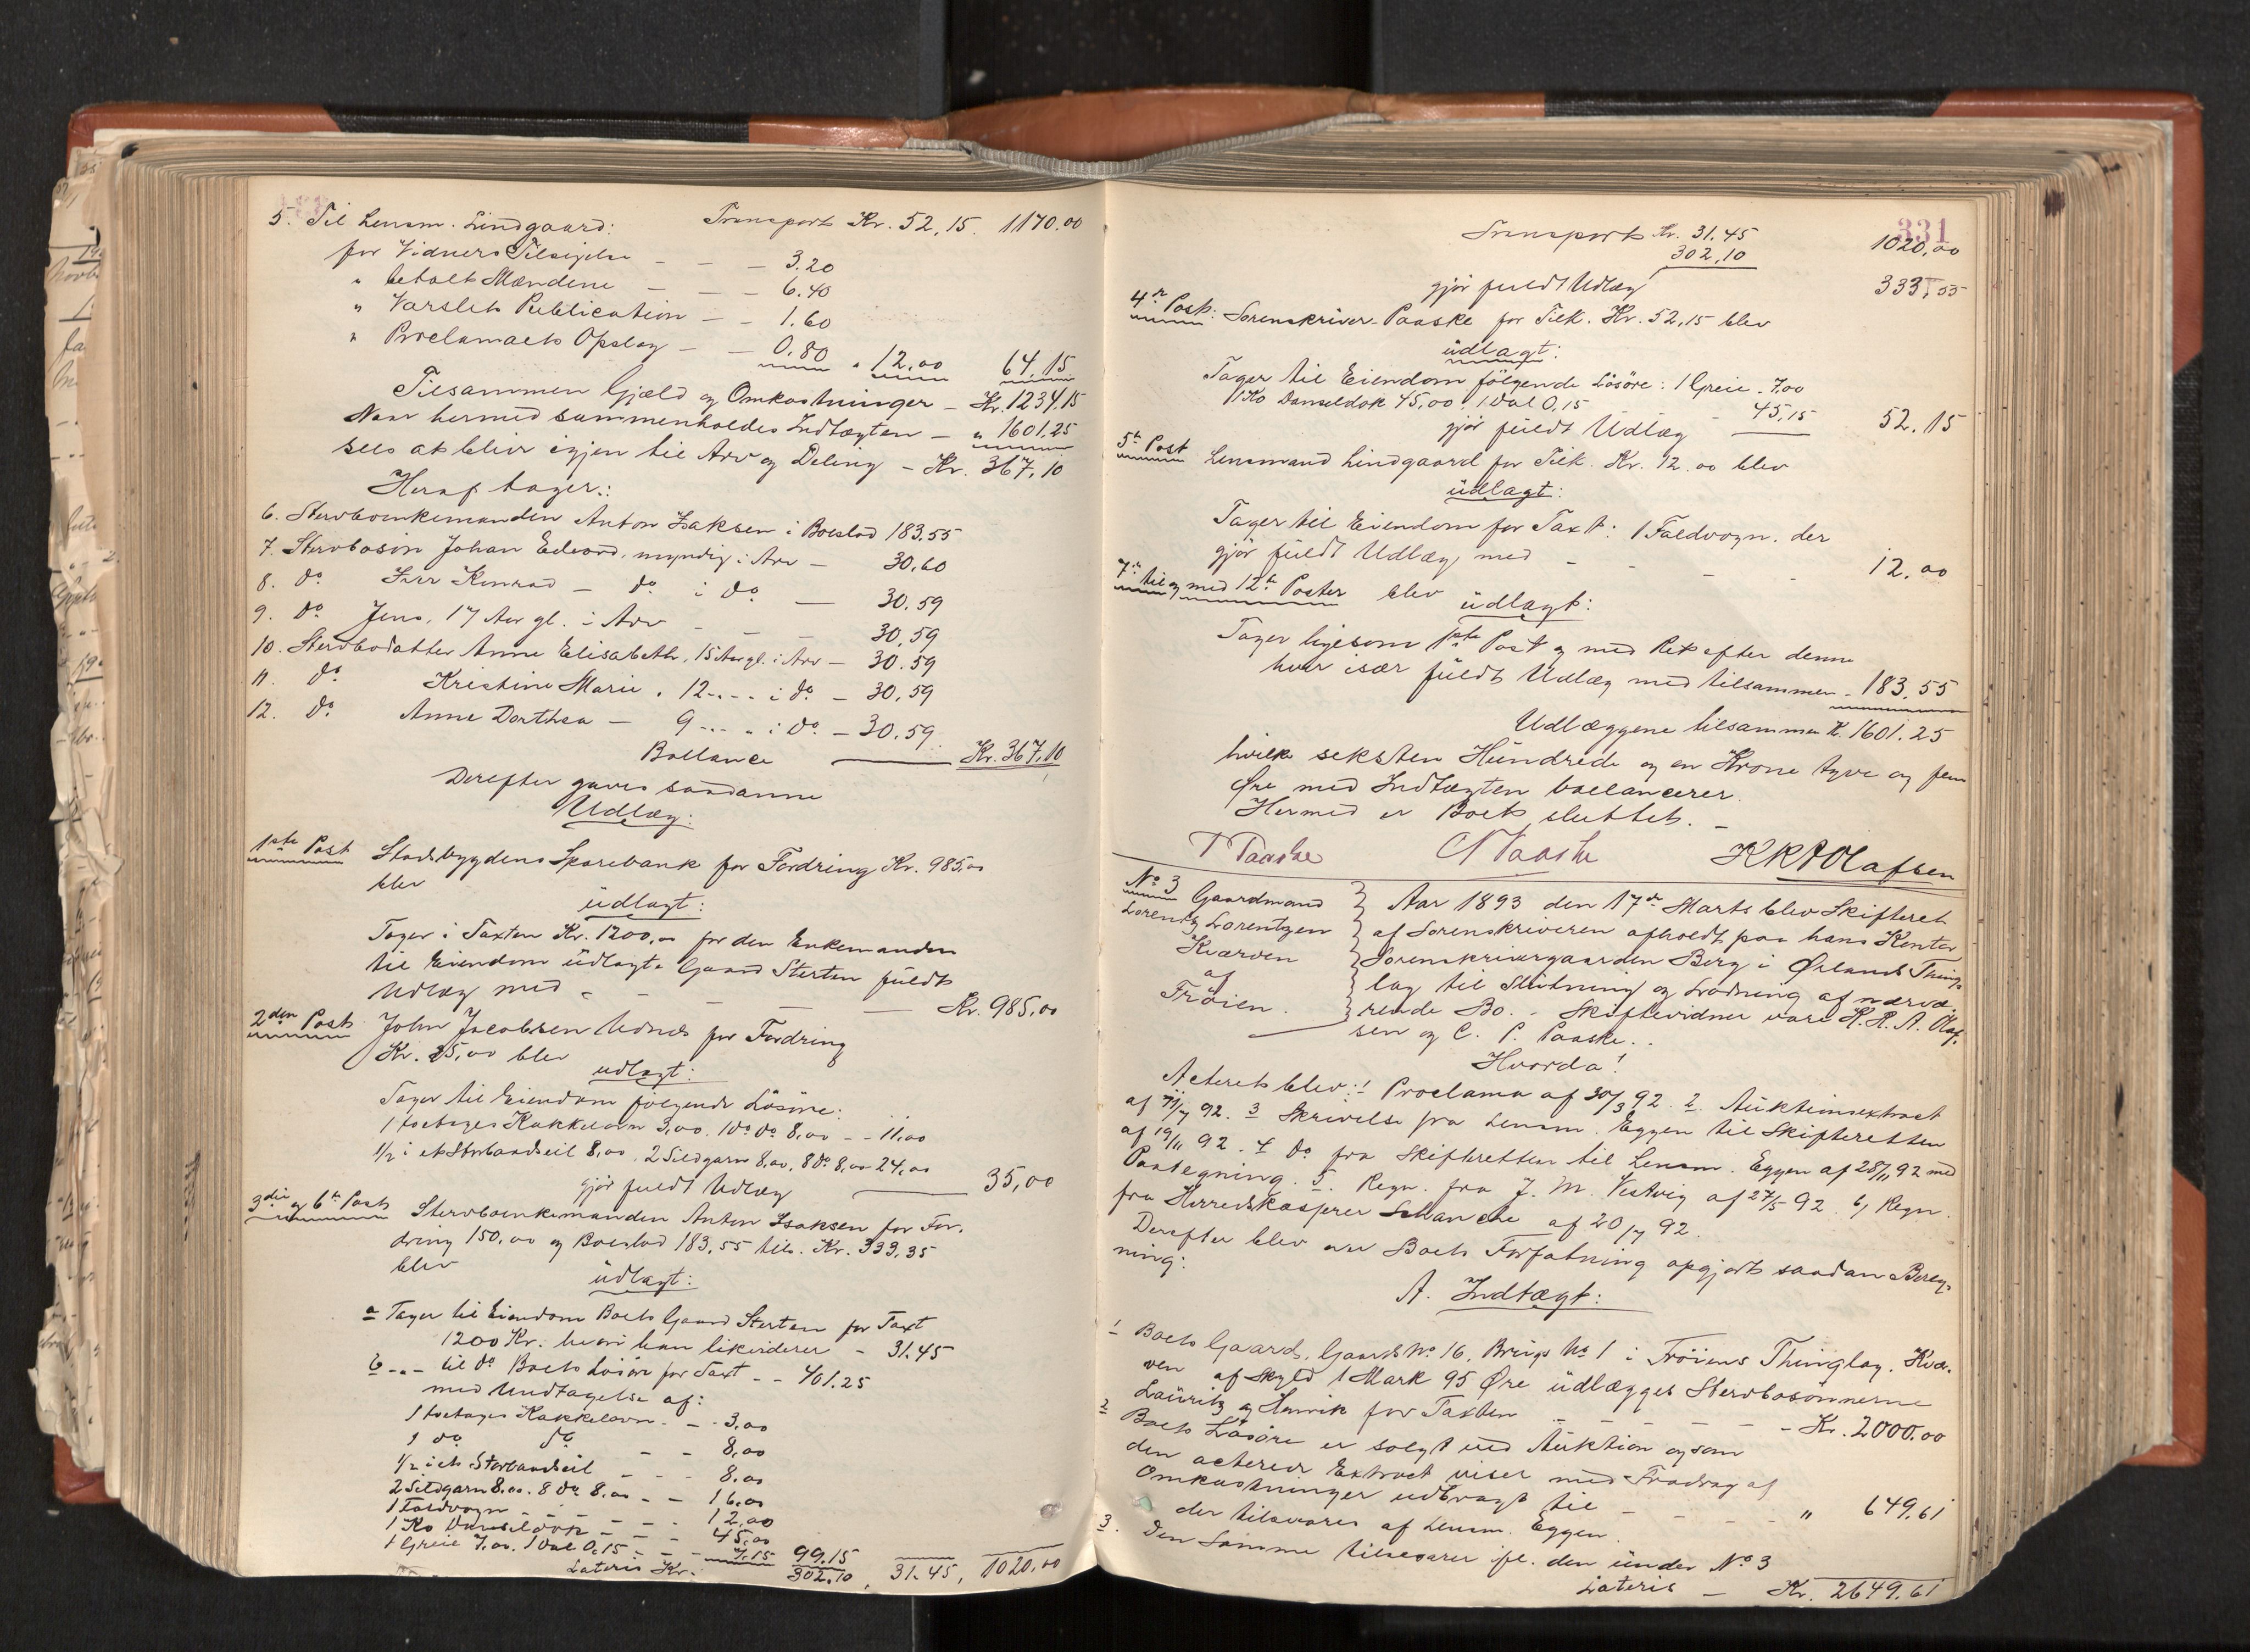 5. Til Lensm. Lindgaard: Transport Kr. 52,15. 1170.00
for Vidners Tilsigelse - - - 3.20
" betalt Mændene - - - 6.40
" Varslets Publication - - 1.60
" Proclamaets Opslag - - 0.80 " 12,00 64,15
Tilsammen Gjæld og Omkostninger - Kr. 1234,15
Naar hermed sammenholdes Indtægten - " 1601,25
sees at bliver igjen til Arv og Deling - Kr. 367,10
Heraf tager:
6. Stervboenkemanden Anton Isaksen i Boeslod 183,55
7. Stervbosøn Johan Edvard, myndig i Arv - 30,60
8. do Iver Konrad - do i do - 30.59
9. do Jens, 17 Aar gl. i Arv - - - 30,59
10. Stervbodatter Anne Elisabeth, 15 Aar gl. i Arv - 30.59
11. do Kristine Marie, 12 - - - i do - 30,59
12. do Anne Dorthea - 9 - - " i do - 30.59
Ballance Kr. 367,10
Derefter gaves saadanne
Udlæg:
1ste Post Stadsbygdens Sparebank for Fordring Kr. 985,00
blev
udlagt:
Tager i Taxten Kr. 1200,00 for den Enkemanden
til Eiendom udlagte Gaard Sterten fuldt
Udlæg med - - - Kr. 985,00
2den Post John Jacobsen Udnæs for Fordring
Kr. 35,00 blev
udlagt:
Tager til Eiendom følgende Løsøre:
1 toetages Kakkelovn 3,00. 1 do do 8,00 - - 11,00
1/2 i et Storbaadseil 8,00, 2 Sildgarn 8,00, 8 do 8,00 24,00
gjør fuldt Udlæg 35,00
3die og 6te Post Stervboenkemanden Anton Isaksen for For-
dring 150,00 og Boeslod 183,55 tils. Kr. 333,35
blev
udlagt:
a Tager til Eiendom Boets Gaard Sterten for Taxt
1200 Kr. hvori han likviderer - 31.45
b - - - til do Boets Løsøre for Taxt - - 401.25
med Undtagelse af:
1 toetages Kakkelovn - - 3,00
1 do do - - 8,00
1/2 i et Storbaadseil - - - 8.00
2 Sildgarn 8.00. 8 do 8.00 - - 16.00
1 Faldvogn - - - - - 12,00
1 Ko Danseldok - - - 45,00
1 Greie 7.00. 1 Val 0,15 - - - 7.15 99.15
Lateris Kr. 302.10, 31.45, 1020.00
331
Transport Kr. 31.45 1020,00
302,10
gjør fuldt Udlæg 333,55
4de Post: Sorenskriver Paaske for Tilk. Kr. 52,15 blev
udlagt:
Tager til Eiendom følgende Løsøre: 1 Greie 7.00
1 Ko Danseldok 45,00, 1 Val 0,15 - 45,15
gjør fuldt Udlæg 52.15
5te Post Lensmand Lindgaard for Tilk. Kr. 12.00 blev
udlagt:
Tager til Eiendom for Taxt: 1 Faldvogn. der
gjør fuldt Udlæg med - - - - 12.00
7de til og med 12te Poster blev udlagt:
Tager ligesom 1ste Post og med Ret efter denne
hver især fuldt Udlæg med tilsammen - 183,55
Udlæggene tilsammen Kr. 1601.25
hvilke seksten Hundrede og en Krone tyve og fem
Øre med Indtægten ballancerer.
Hermed er Boets sluttet. -
Paaske C Paaske KRAOlafsen
No 3 Gaardmand
Lorentz Lorentzen
Kværven
af
Frøien.
Aar 1893 den 17de Marts blev Skifteret
af Sorenskriveren afholdt paa hans Kontor
Sorenskrivergaarden Berg i Ørlands Thing-
lag til Slutning og Lodning af nærvæ-
rende Bo. - Skiftevidner vare K. R. A. Olaf-
sen og C. P. Paaske. .
Hvorda!
Acteret blev: 1 Proclama af 30/3 92. 2. Auktionsextract
af 11/7 92. 3 Skrivelse fra Lensm. Eggen til Skifteretten
af 19/11 92. 4 do fra Skifteretten til Lensm. Eggen af 28/11 92 med
Paategning. 5. Regn. fra J. M. Vestvig af 27/5 92. 6, Regn.
fra Herredskasserer Schanche af 20/7 92.
Derefter blev over Boets Forfatning opgjort saadan Bereg-
ning:
A. Indtægt:
1 Boets Gaard, Gaards No 16, Brugs No 1 i Frøiens Thinglag. Kvær-
ven af Skyld 1 Mark 95 Øre udlægges Stervbosønnerne
Lauritz og Henrik for Taxten - - - - - - Kr. 2000.00
2 Boets Løsøre er solgt ved Auktion og som
den acterede Extract viser med Fradrag af
Omkostninger udbragt til - - - - - " 649,61
der tilsvares af Lensm. Eggen.
3. Den Samme tilsvarer ifl. den under No 3
Lateris - Kr. 2649,61